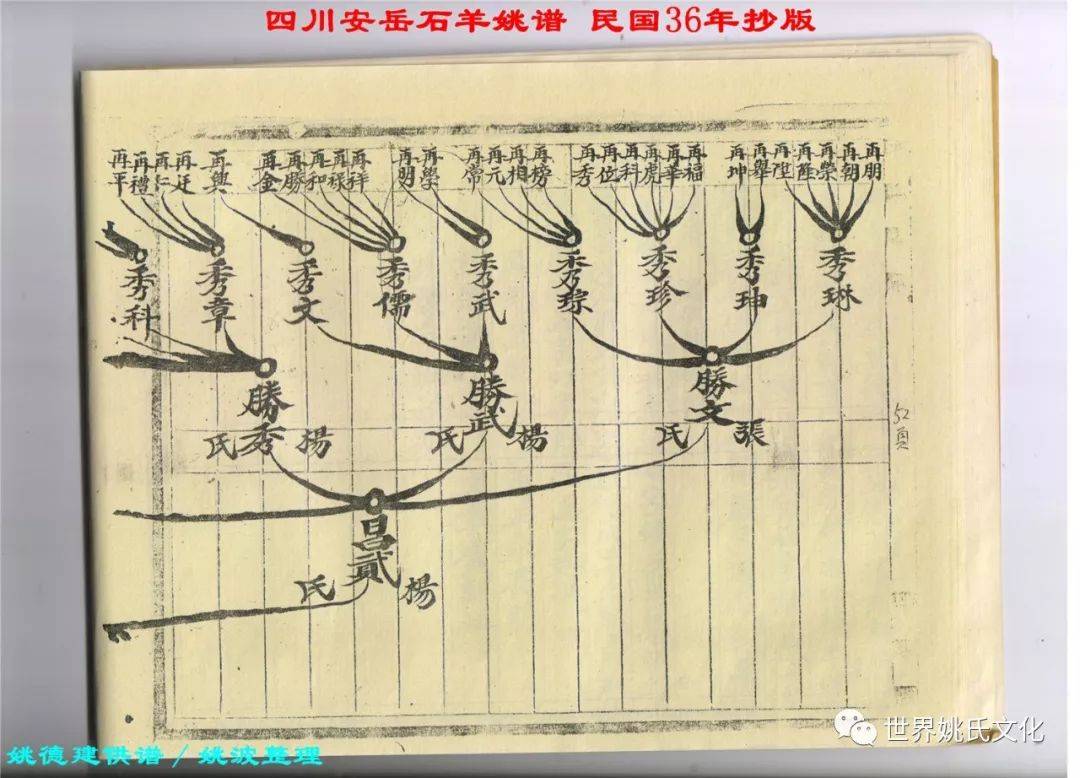 四川安岳石羊姚谱 民国36年抄版
再朋
再朝
再榮
再隆
再陞
再舉
再坤
再福
再華
再虎
再科
再位
再秀
再榜
再相
再元
再常
再學
再明
再祥
再祿
再和
再勝
再金
再興
再廷
再仁
再禮
再平
秀琳
秀珅
秀珍
秀琮
秀武
秀儒
秀文
秀章
秀科
張 勝文 氏
楊 勝武 氏
楊 勝秀 氏
楊 昌貳 氏
52頁
姚德建供谱/姚波整理
世界姚氏文化